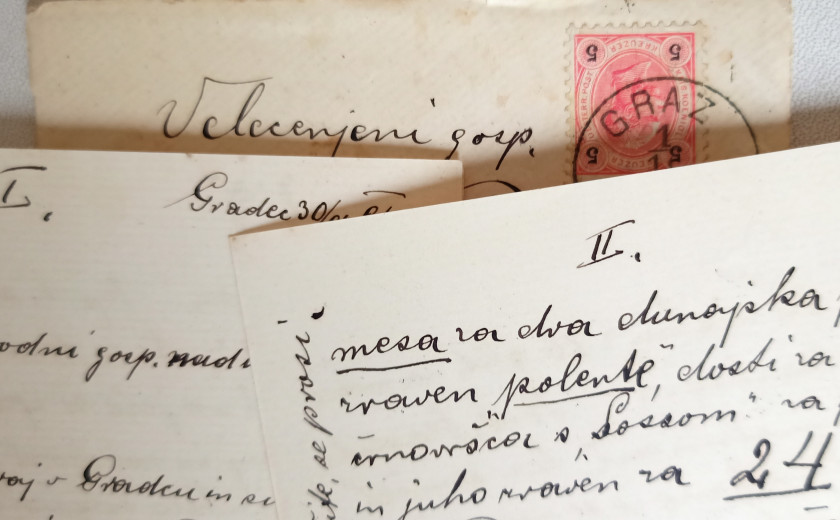 Velecenjeni gosp.
5 KREUZER 5
5 5
GRAZ
1
I.
Gradec 30/
odni gosp. nad
raj v Gradcu in
II.
mesa za dva dunajska
zraven „polente“, dosti za
s „Sossom“ za
in juho zraven za 24
se prosi.